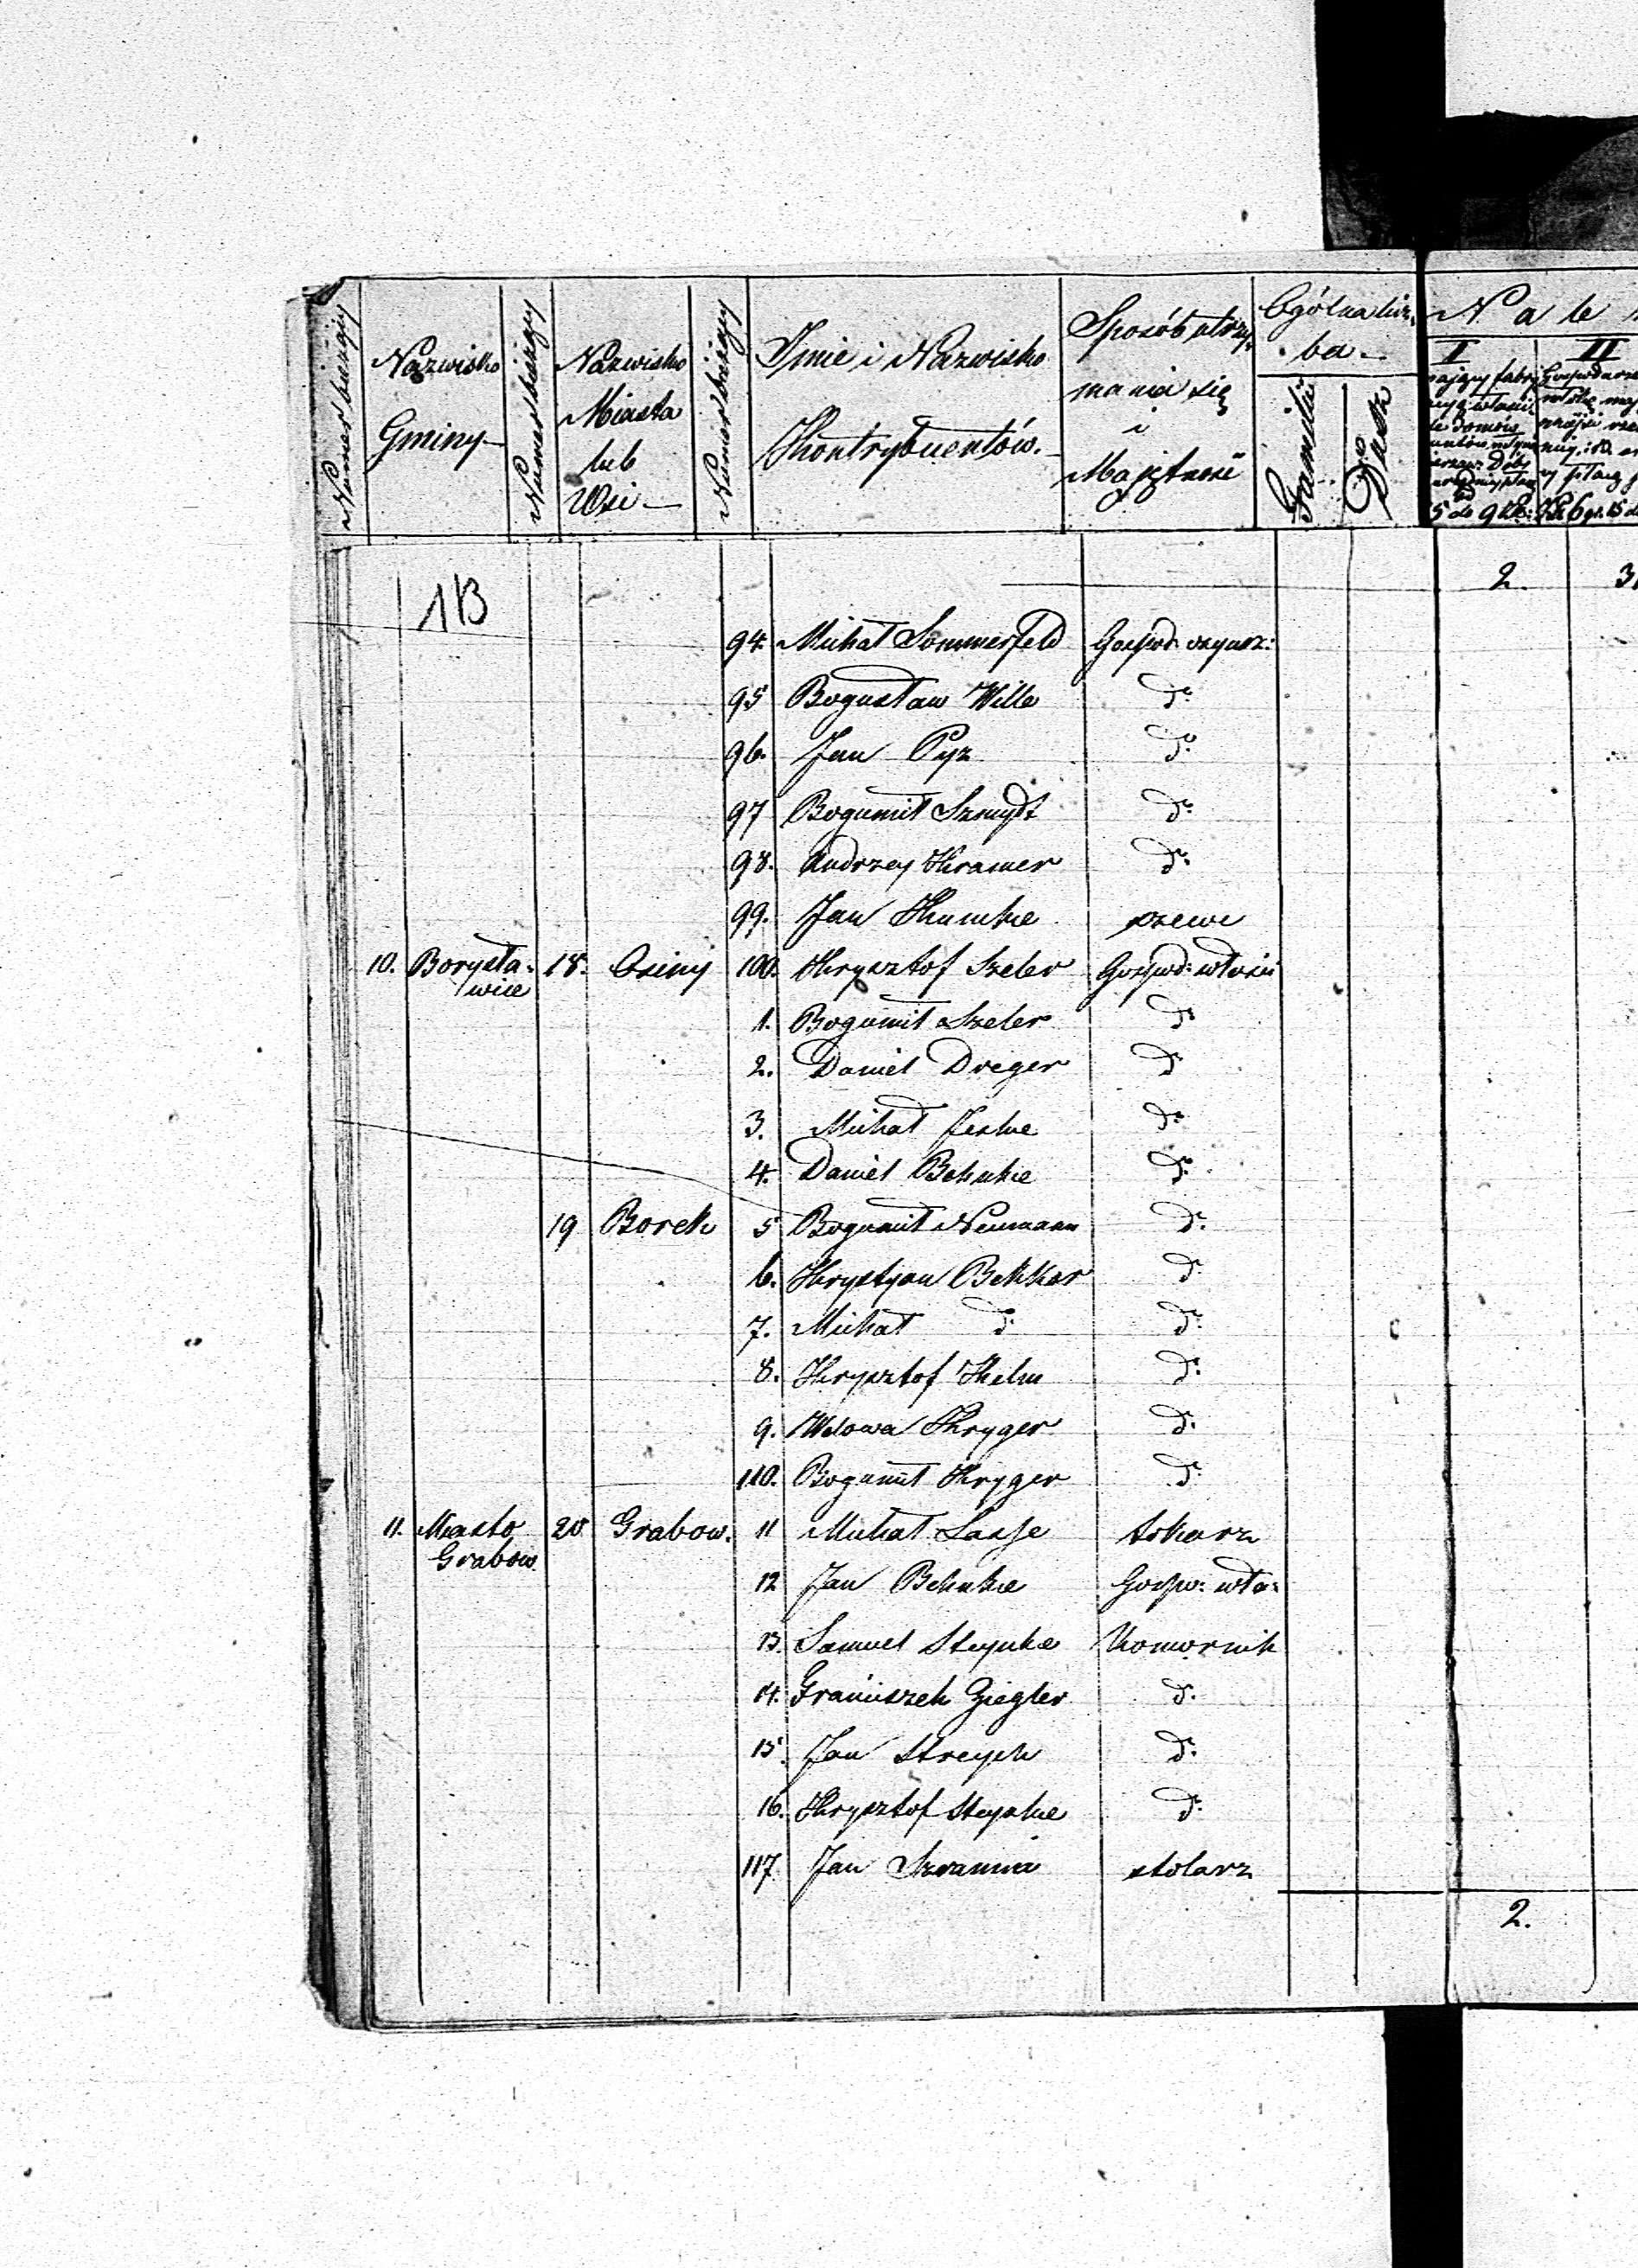 Numer bieżący
Nazwisko
Gminy
Numer bieżący
Nazwisko
Miasta
lub
Wsi
Numer bieżący
Imie i Nazwisko
Kontrybuentów.
Sposób utrzy-
mania się
i
Majątku
Ogólna licz-
ba
Familii
Dusz
N a le
I
II
2. 3
1B
94. Michał Sommerfeld Gospod: czynsz:
95 Bogusław Wille do
96. Jan Pyz do
97 Bogumił Szmydt do
98. Andrzey Kramer do
99. Jan Kumke szewc
10. Borysła- 18. Osiny 100. Krysztof Szeler Gospod: włości
wice
1. Bogumił Szeler do
2. Daniel Dreger do
3. Michał Jeske do
4. Daniel Behnke do
19 Borek 5 Bogumił Neumann do
6. Krystyan Bekker do
7. Michał do do
8. Krysztof Kelm do
9. Wdowa Kryger do
110. Bogumił Kryger do
11. Miasto 20 Grabow. 11 Michał Lasse tokarz
Grabow.
12 Jan Behnke Gospo: wło:
13. Samuel Steynke Komornik
14. Franciszek Ziegler do
15. Jan Streych do
16. Krysztof Steynke do
117. Jan Szramm stolarz
2.